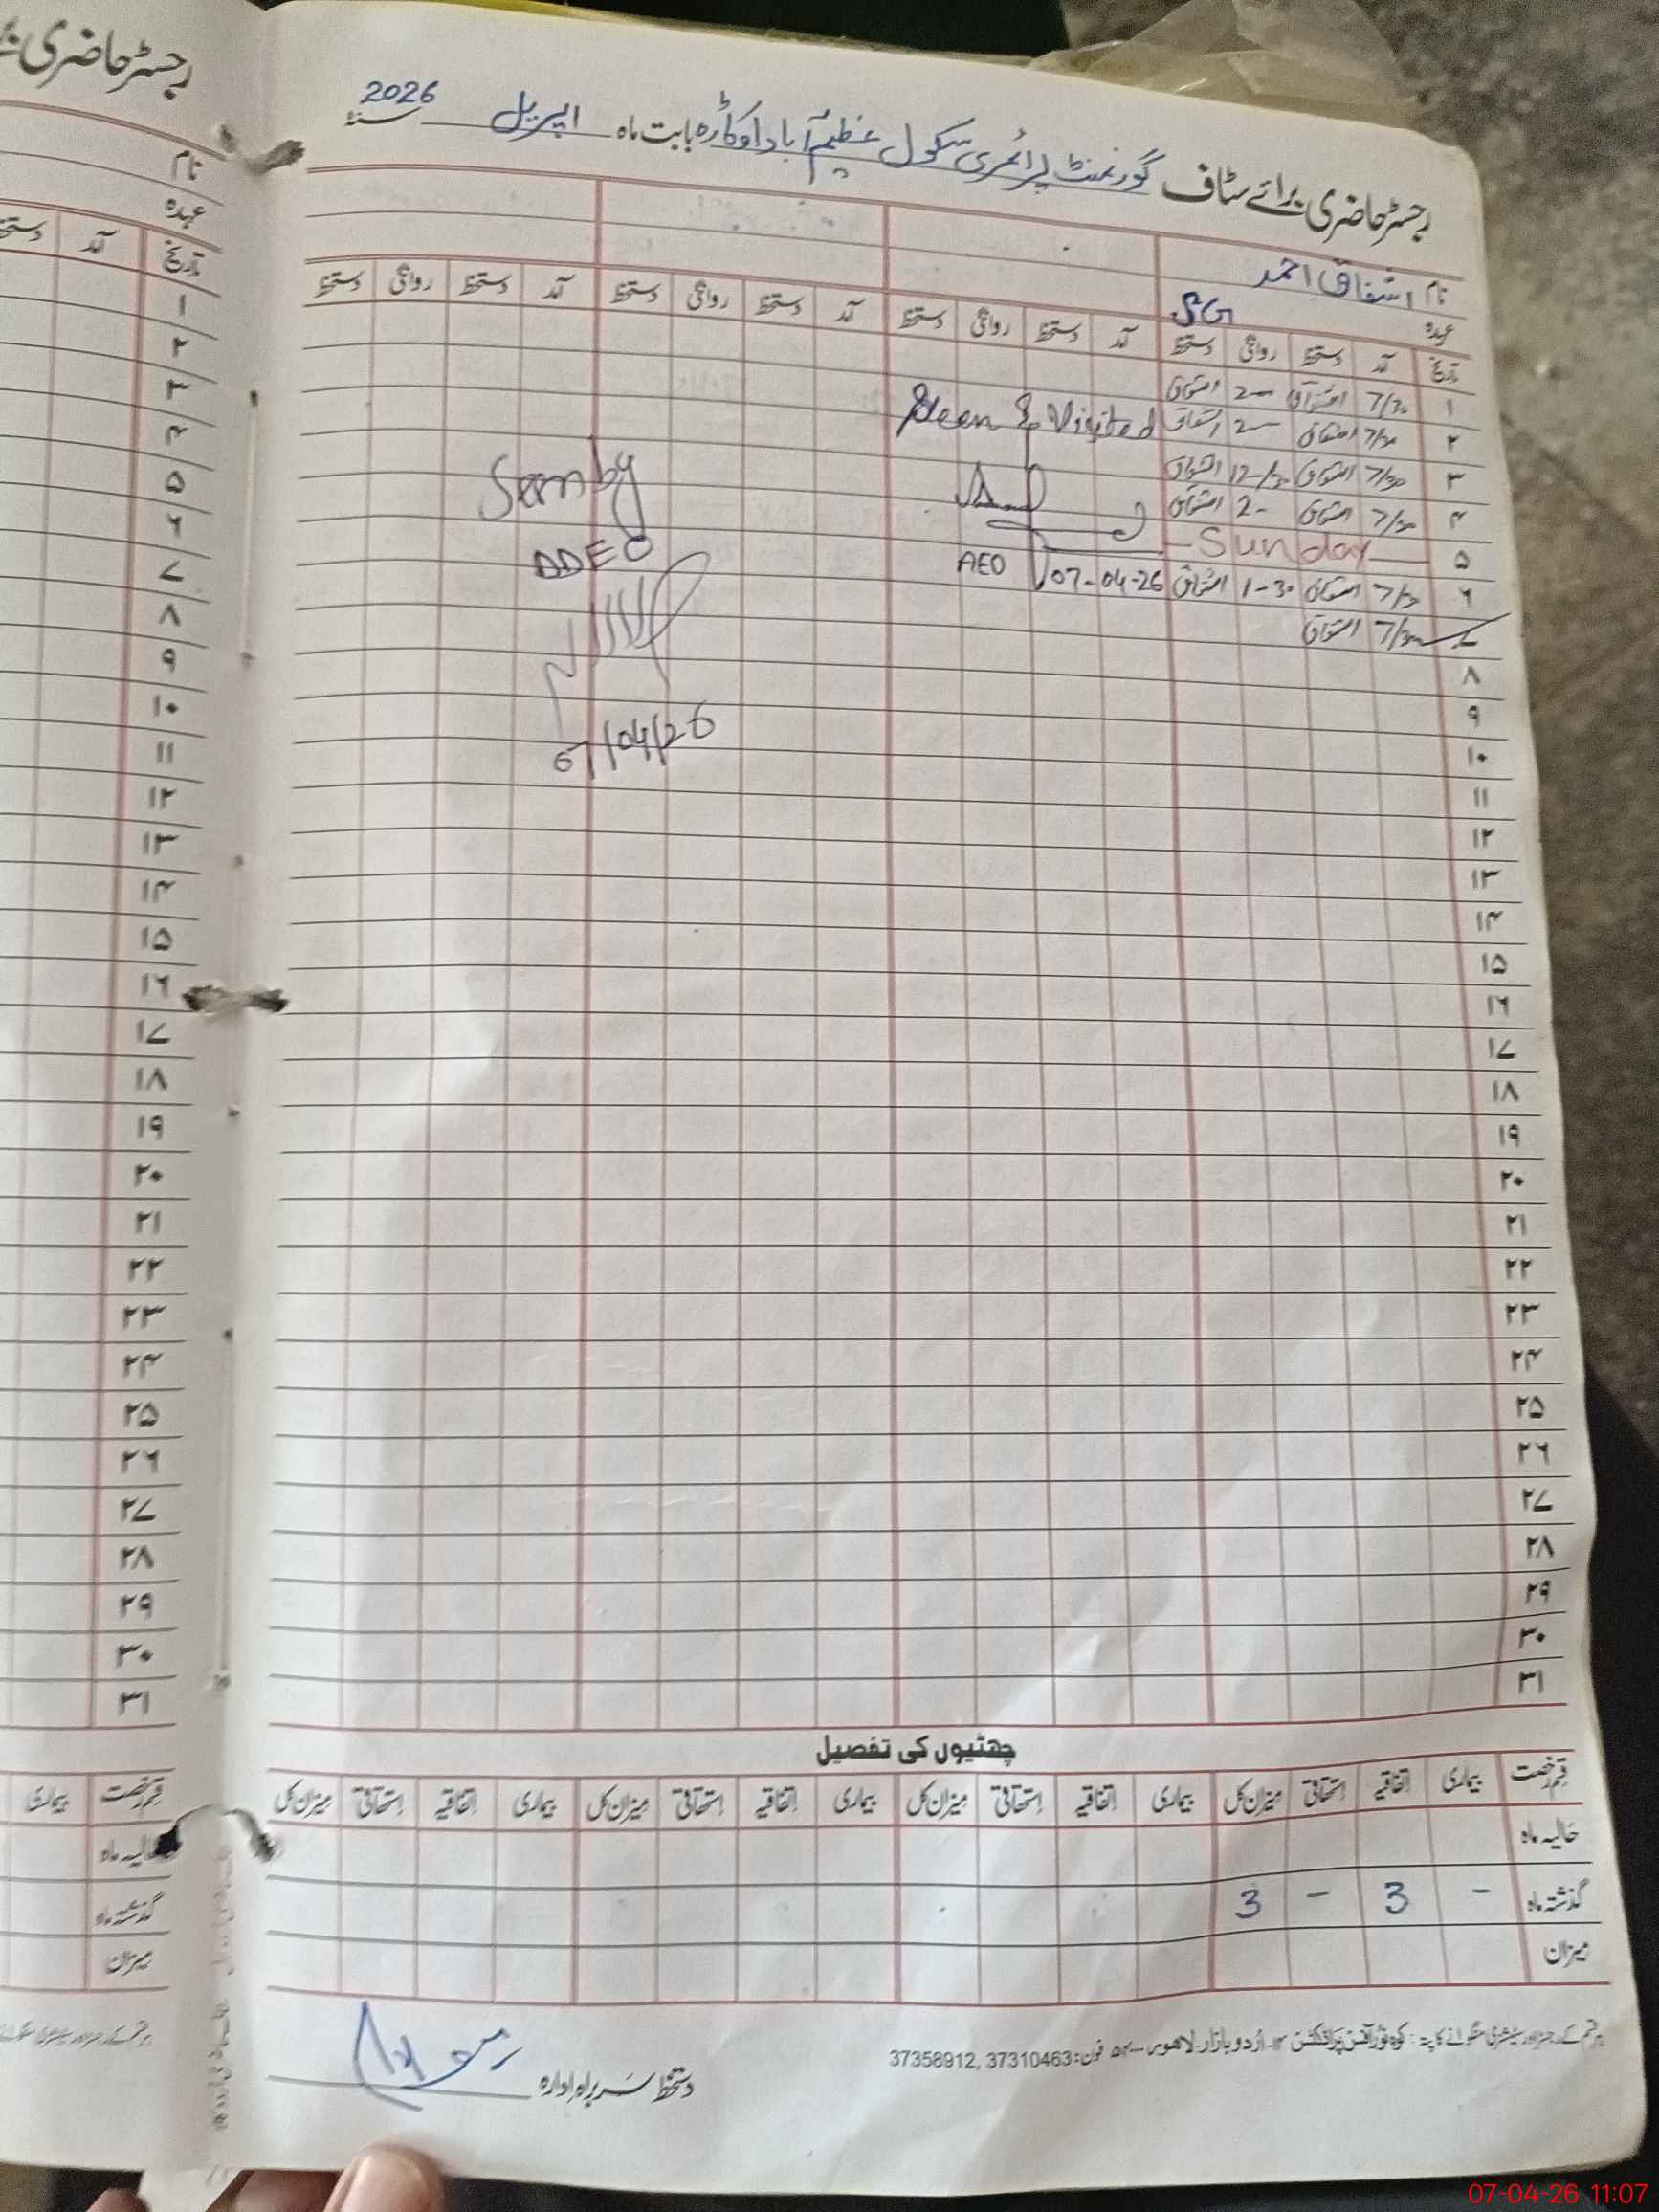 رجسٹر حاضری برائے سٹاف گورنمنٹ پرائمری سکول عظیم آباد اوکاڑہ بابت ماہ اپریل سنہ 2026
نام اشفاق احمد
عہدہ
تاریخ آمد دستخط روانگی دستخط آمد دستخط روانگی دستخط آمد دستخط روانگی دستخط آمد دستخط روانگی دستخط
۱ 7/30 اشفاق 2— اشفاق
۲ 7/30 اشفاق 2— اشفاق Seen & Visited
۳ 7/30 اشفاق 12/30 اشفاق
۴ 7/30 اشفاق 2- اشفاق
Seen by
۵ Sunday
DDEO
۶ 7/30 اشفاق 1-30 اشفاق 07-04-26 AEO
۷ 7/30 اشفاق
07/04/26
۸
۹
۱۰
۱۱
۱۲
۱۳
۱۴
۱۵
۱۶
۱۷
۱۸
۱۹
۲۰
۲۱
۲۲
۲۳
۲۴
۲۵
۲۶
۲۷
۲۸
۲۹
۳۰
۳۱
چھٹیوں کی تفصیل
قسم رخصت بیماری اتفاقیہ استحقاقی میزان کل بیماری اتفاقیہ استحقاقی میزان کل بیماری اتفاقیہ استحقاقی میزان کل بیماری اتفاقیہ استحقاقی میزان کل
حالیہ ماہ
گذشتہ ماہ - 3 - 3
میزان
اردو بازار لاہور فون: 37310463, 37358912
دستخط سربراہ ادارہ
رجسٹر حاضری
نام
عہدہ
تاریخ آمد دستخط
۱
۲
۳
۴
۵
۶
۷
۸
۹
۱۰
۱۱
۱۲
۱۳
۱۴
۱۵
۱۶
۱۷
۱۸
۱۹
۲۰
۲۱
۲۲
۲۳
۲۴
۲۵
۲۶
۲۷
۲۸
۲۹
۳۰
۳۱
قسم رخصت بیماری
حالیہ ماہ
گذشتہ ماہ
میزان
07-04-26 11:07